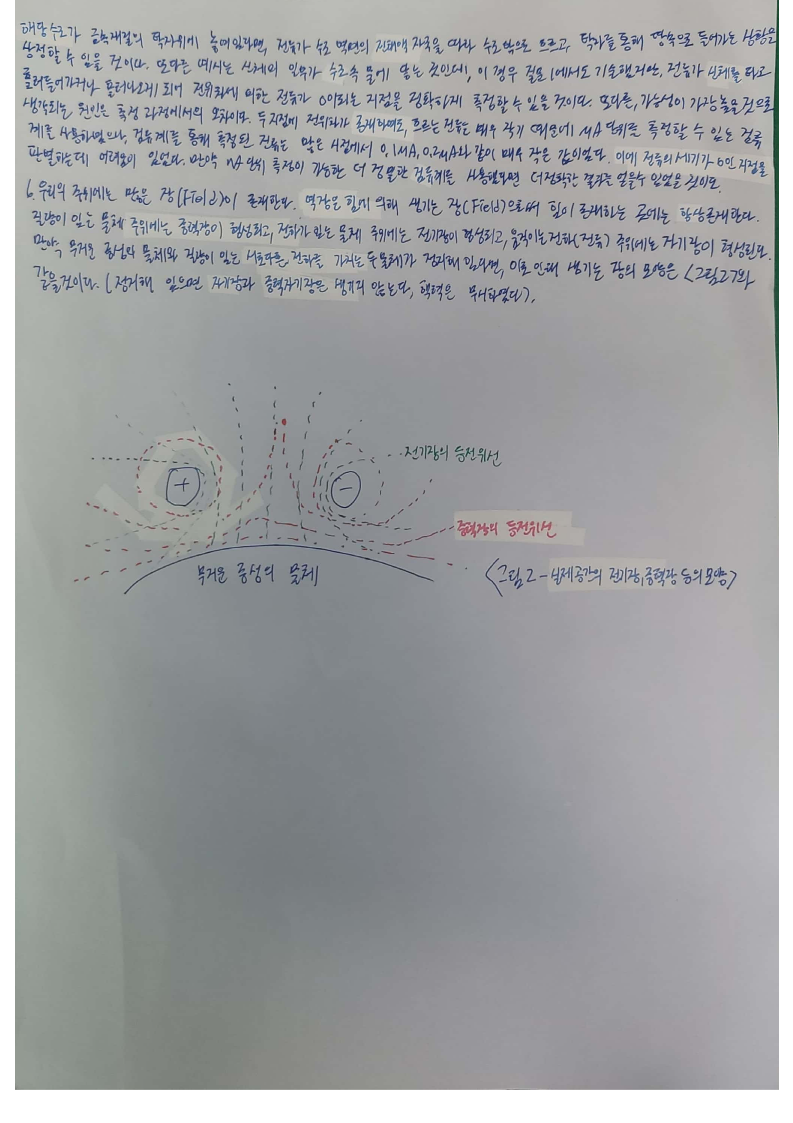 해당 수조가 금속재질의 탁자위에 놓여있다면, 전류가 수조 벽면의 전해액 자국을 따라 수조 밖으로 흐르고, 탁자를 통해 땅속으로 들어가는 상황을
상정할 수 있을 것이다. 또다른 예시는 신체의 일부가 수조속 물에 닿는 것인데, 이 경우 결론 1에서도 기술했지만, 전류가 신체를 타고
흘러들어가거나 흘러나오게 되어 전위차에 의한 전류가 0이되는 지점을 정확하게 측정할 수 없을 것이다. 또다른, 가능성이 가장 높을 것으로
생각되는 원인은 측정 과정에서의 오차이다. 두 지점에 전위차가 존재하여도, 흐르는 전류는 매우 작기 때문에 μA 단위로 측정할 수 있는 검류
계를 사용하였으나, 검류계를 통해 측정된 전류는 많은 시점에서 0.1μA, 0.2μA와 같이 매우 작은 값이었다. 이에 전류의 세기가 0인 지점을
판별하는데 어려움이 있었다. 만약 nA 단위 측정이 가능한 더 정밀한 검류계를 사용했다면 더 정확한 결과를 얻을수 있었을 것이다.
6. 우리의 주위에는 많은 장(Field)이 존재한다. 역장은 힘에 의해 생기는 장(Field)으로써 힘이 존재하는 곳에는 항상 존재한다.
질량이 있는 물체 주위에는 중력장이 형성되고, 전하가 있는 물체 주위에는 전기장이 형성되고, 움직이는 전하(전류) 주위에는 자기장이 형성된다.
만약 무거운 중성의 물체와 질량이 있는 서로다른 전하를 가지는 두 물체가 정지해 있다면, 이로 인해 생기는 장의 모양은 <그림2>와
같을것이다. (정지해 있으면 자기장과 중력자기장은 생기지 않는다, 핵력은 무시하였다).
+
−
전기장의 등전위선
중력장의 등전위선
무거운 중성의 물체
<그림 2 - 실제 공간의 전기장, 중력장 등의 모양>